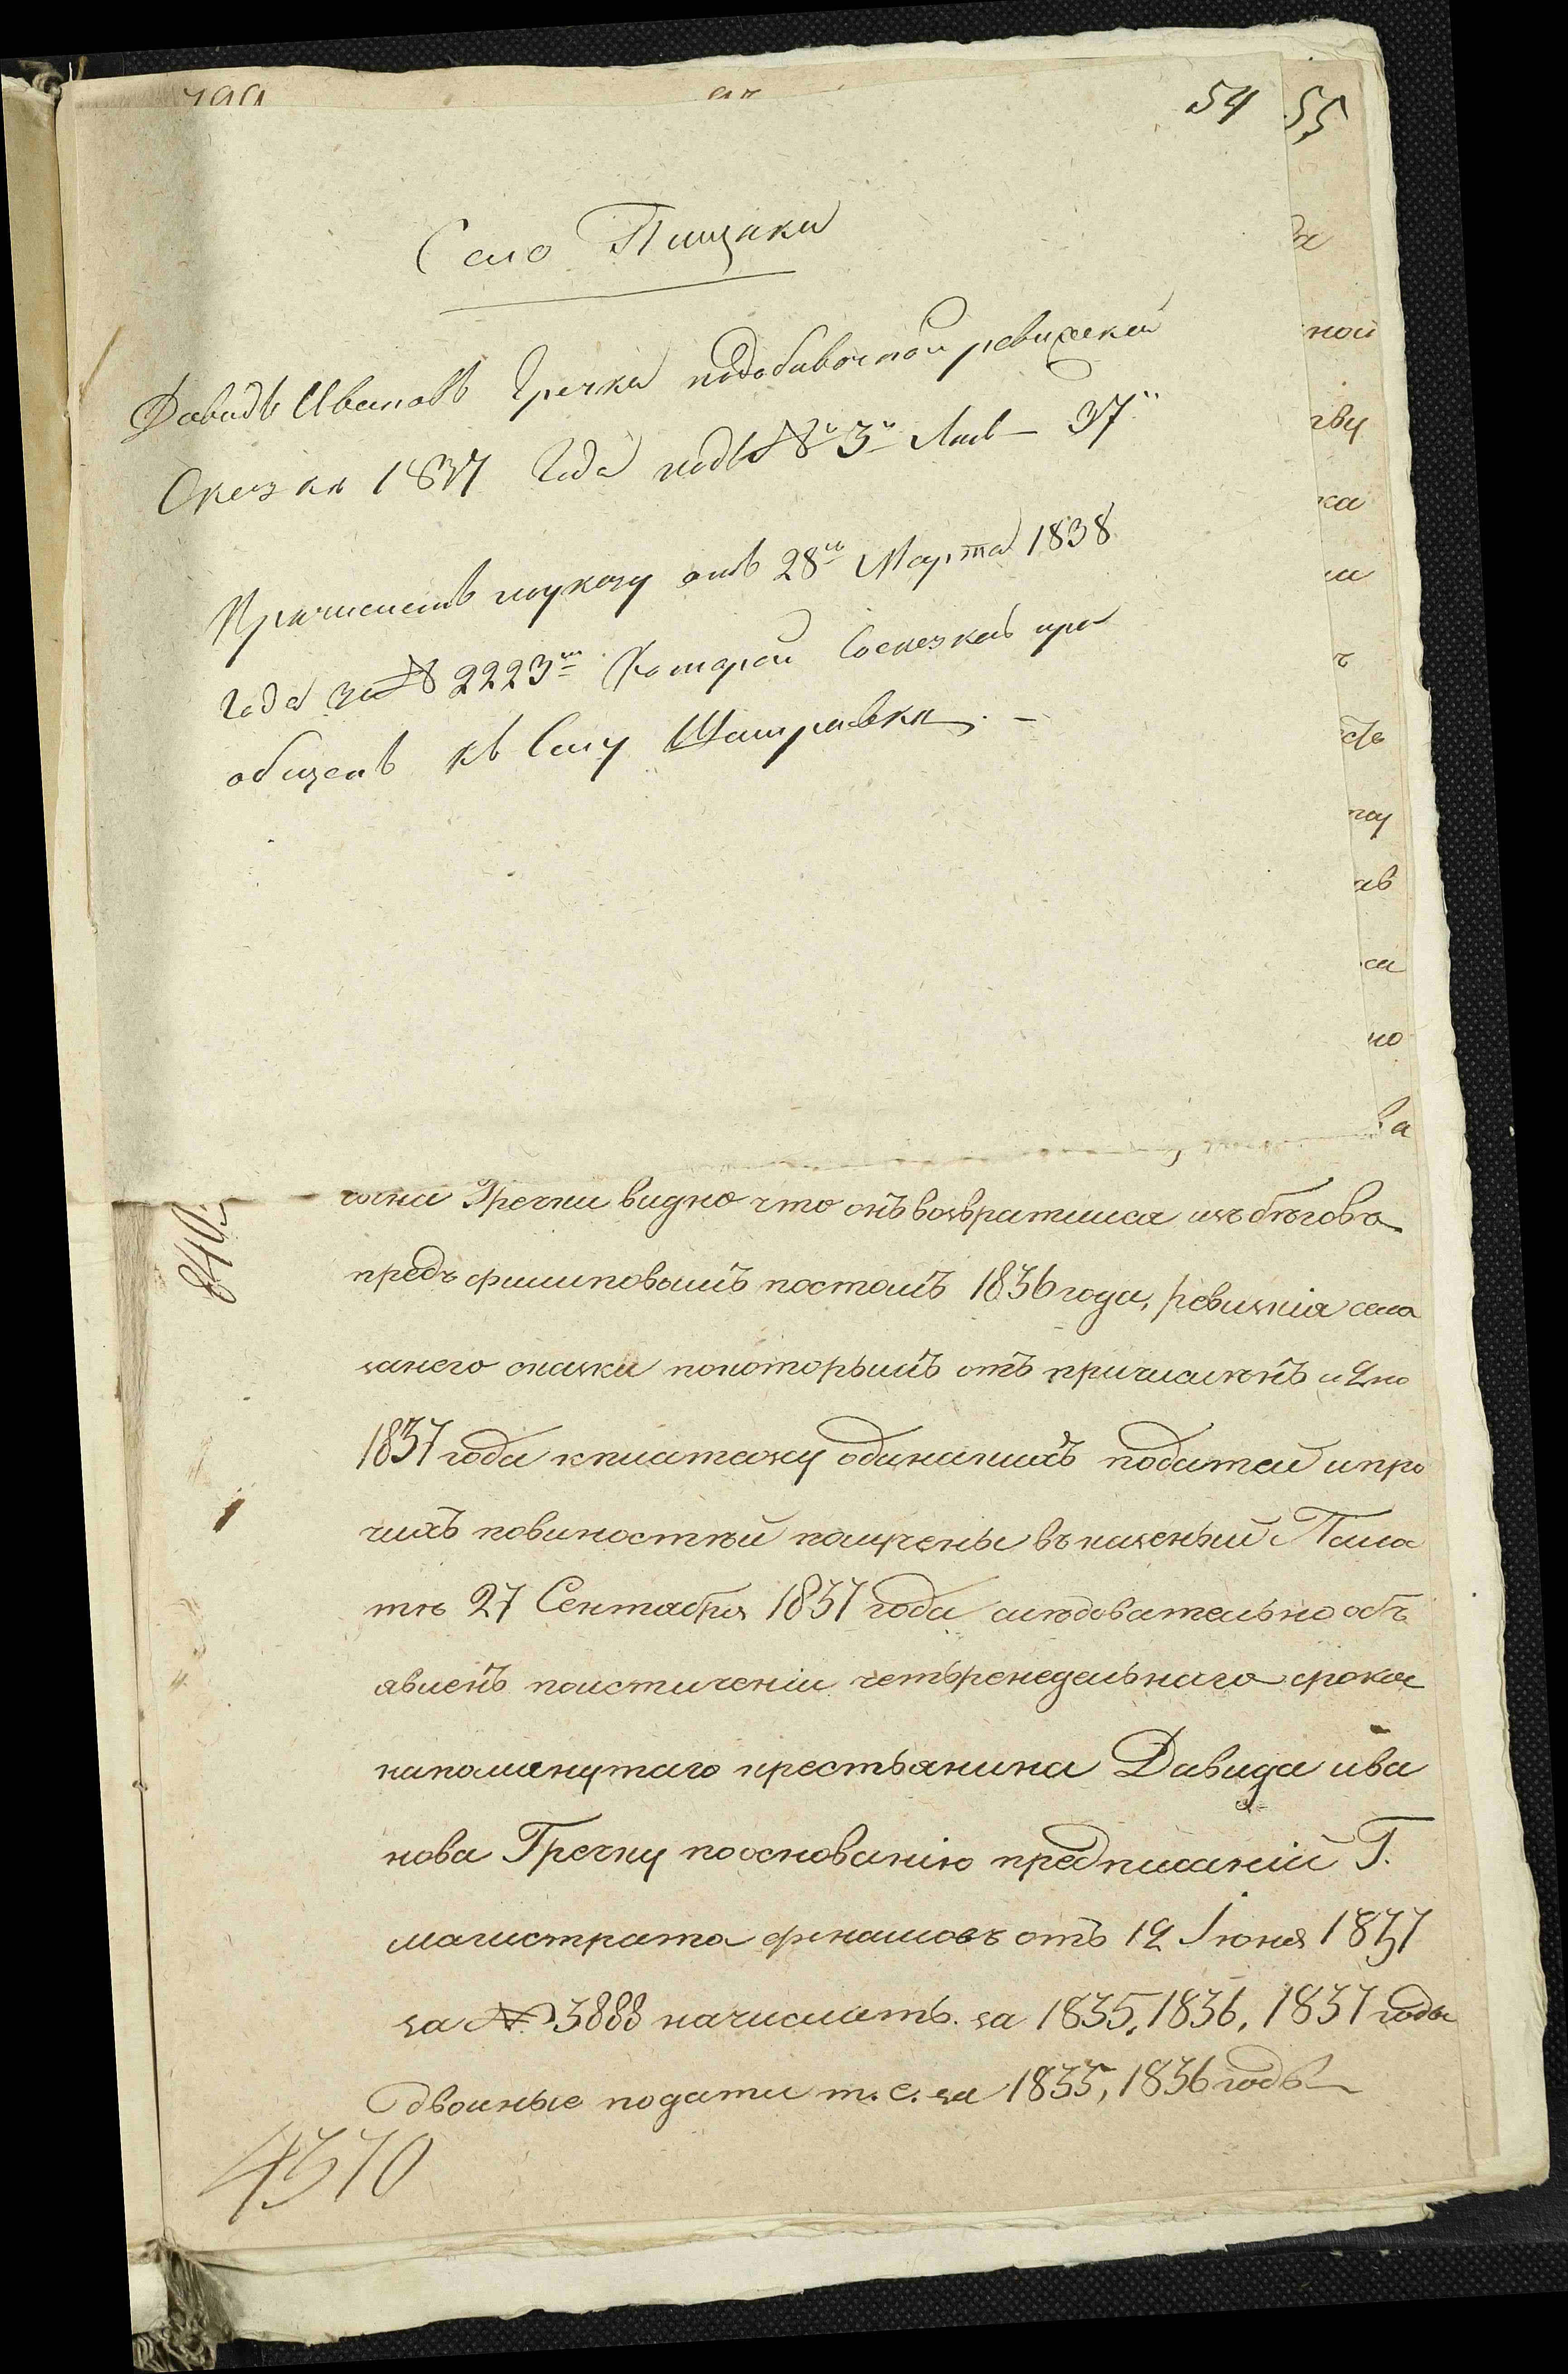 54 55
Село Пищики
Давидъ Ивановъ Гречка подобавочной ревизской
Сказки 1837 Года подъ № 3й Лит 37
Причисленъ поуказу отъ 28го Марта 1838
Года за № 2223м Которой Сосказкой при
общенъ къ Селу Шамраевки. —
Гречки видно что онъ возвратился изъ бѣговъ
предъ филиповымъ постомъ 1836 года, ревизкія села
занего сказки покоторымъ отъ причисленъ и 2ю
1837 года кплатежу одинакихъ податей ипро
чихъ повиностѣй полученъ въ казеный Пала
тѣ 27 Сентября 1837 года слѣдовательно объ
явленъ поистиченіи четыренедельнаго срока
напомянутаго крестьянина Давида ива
нова Гречку пооснованію предписаній Г.
магистрата финансовъ отъ 12 Іюня 1837
за № 3888 начислить за 1835, 1836, 1837 годы
двоиные подати т. е. за 1835, 1836 годъ
840
4370